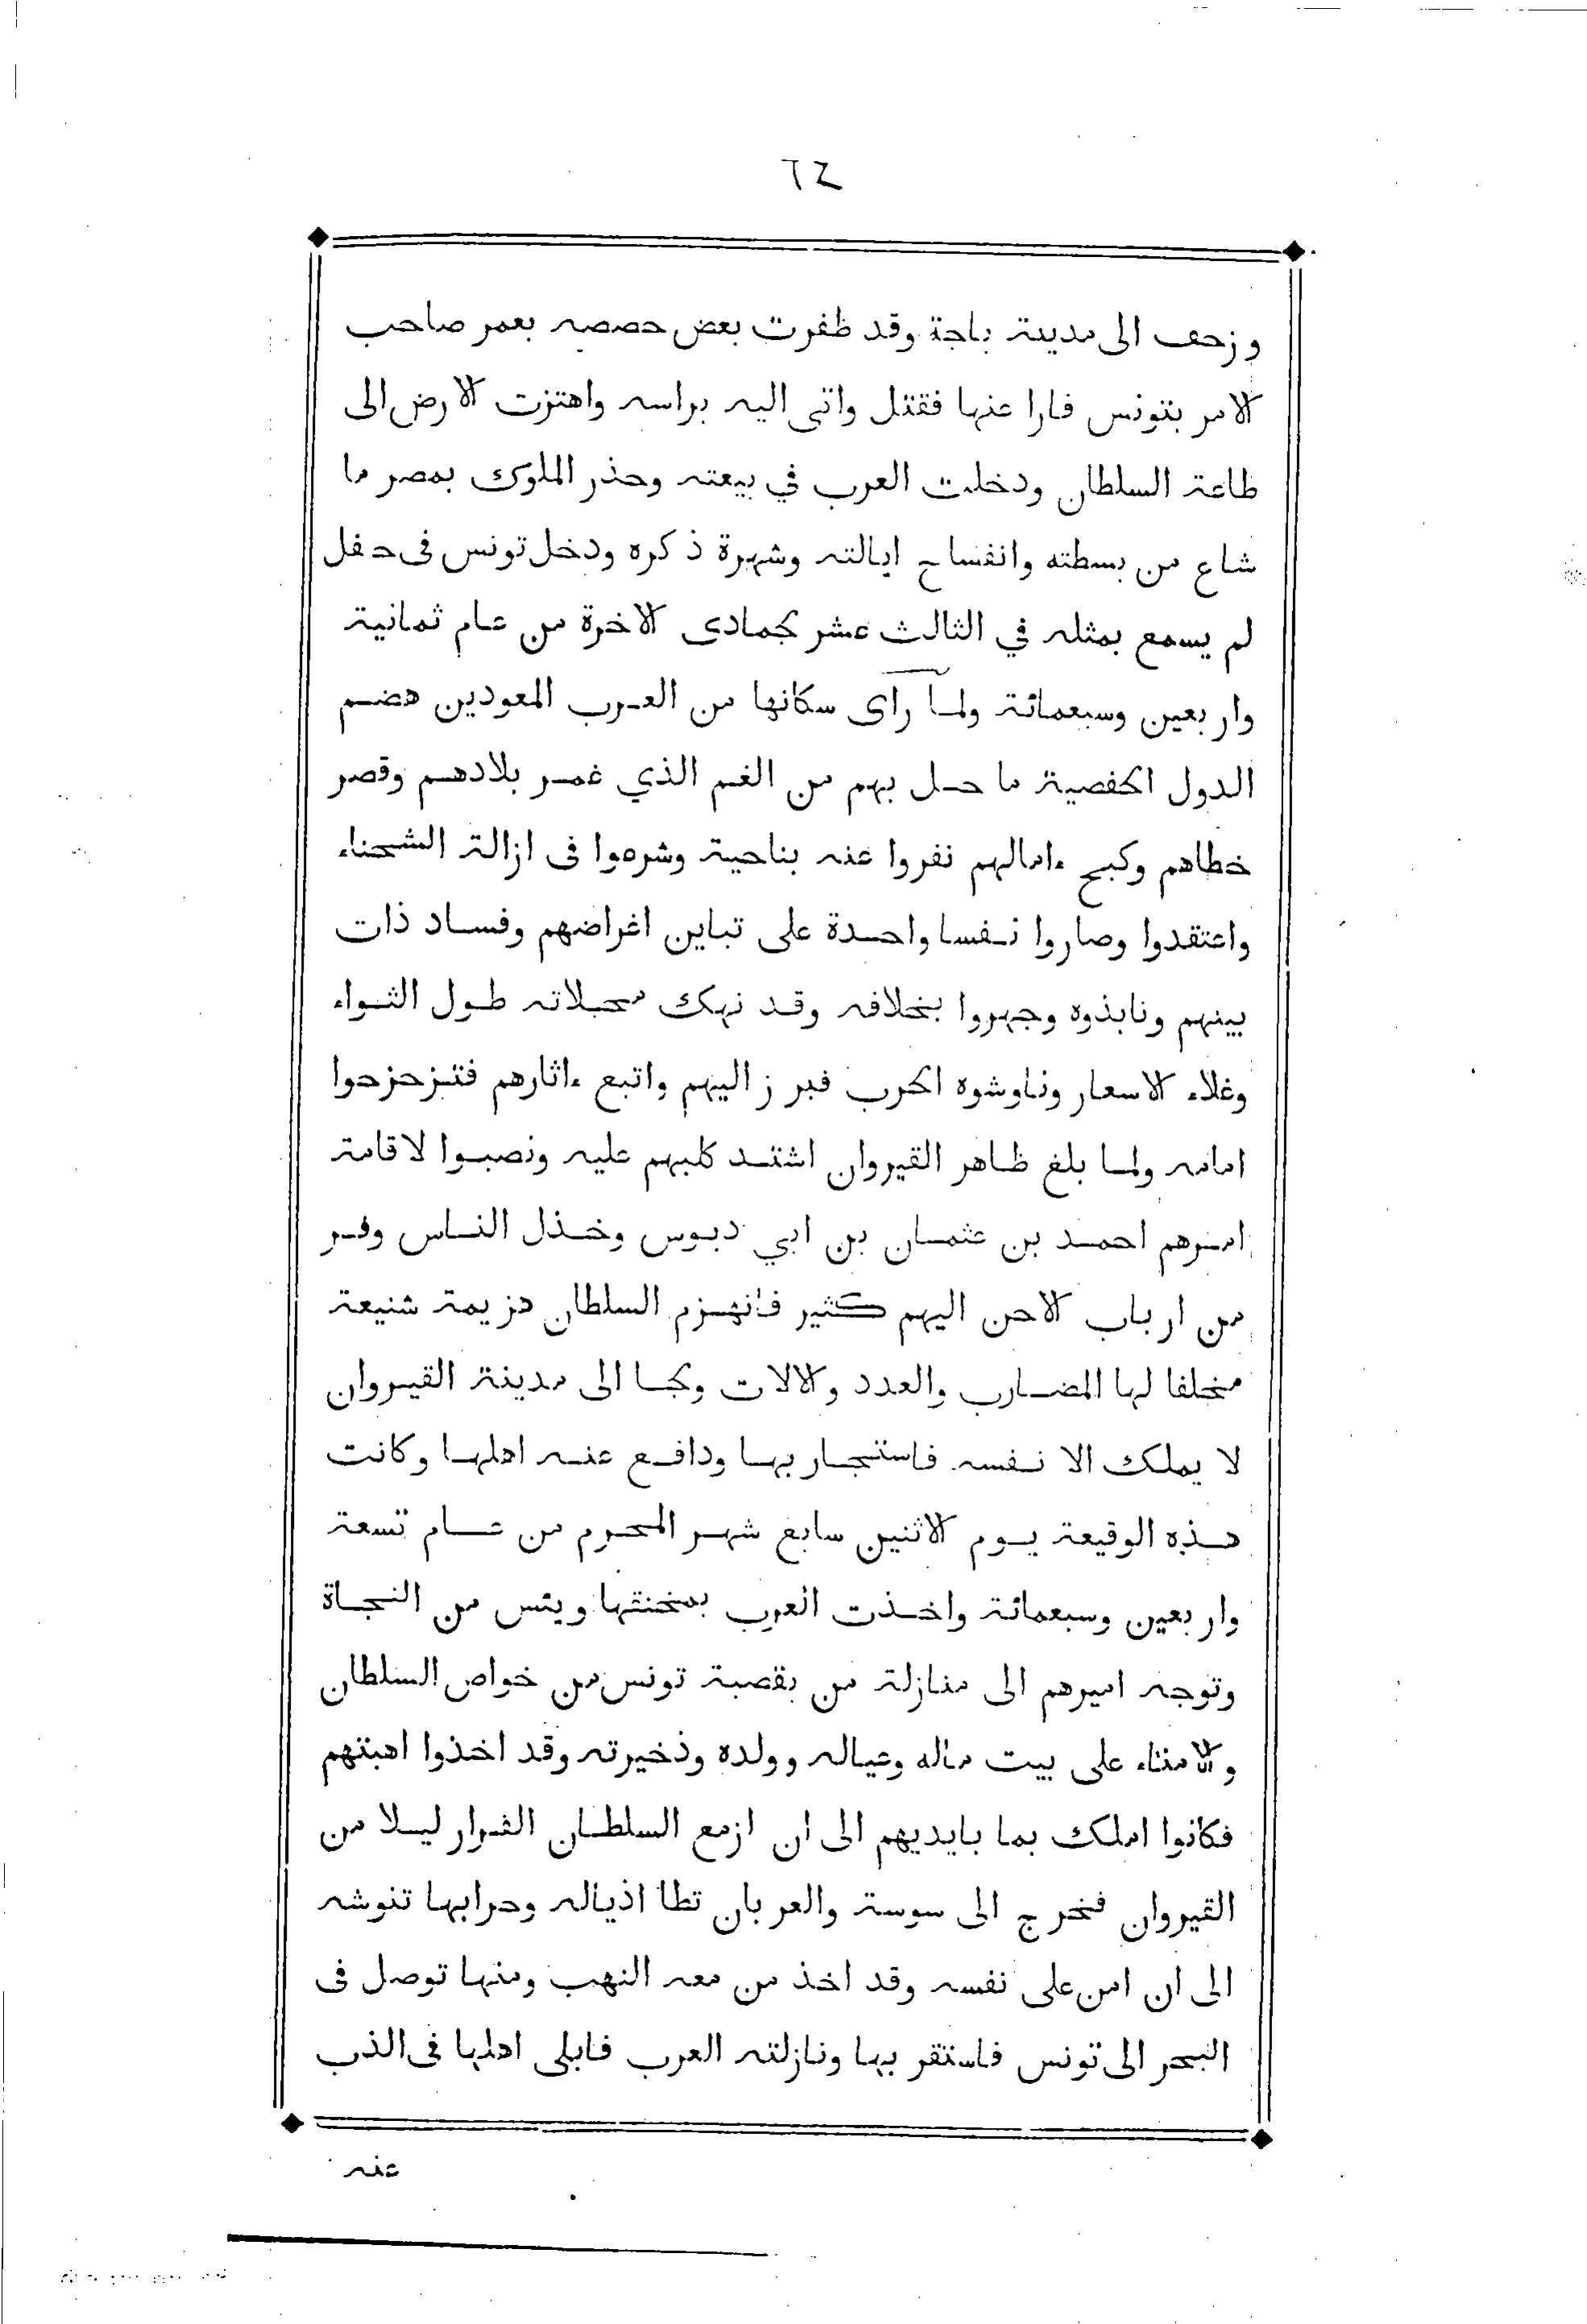 ٦٤
وزحف الى مدينة باجة وقد ظفرت بعض حصصه بعمر صاحب
الامر بتونس فارا عنها فقتل واتى اليه براسه واهتزت الارض الى
طاعة السلطان ودخلت العرب في بيعته وحذر الملوك بمصر ما
شاع من بسطته وانفساح ايالته وشهرة ذكره ودخل تونس فى حفل
لم يسمع بمثله في الثالث عشر لجمادى الاخرة من عام ثمانية
واربعين وسبعمائة ولما رآى سكانها من العرب المعودين هضم
الدول الحفصية ما حل بهم من الغم الذي غمر بلادهم وقصر
خطاهم وكبح ءامالهم نفروا عنه بناحية وشرعوا فى ازالة الشحناء
واعتقدوا وصاروا نفسا واحدة على تباين اغراضهم وفساد ذات
بينهم ونابذوه وجهروا بخلافه وقد نهك محلاته طول الثواء
وغلاء الاسعار وناوشوه الحرب فبرز اليهم واتبع ءاثارهم فتزحزحوا
امامه ولما بلغ ظاهر القيروان اشتد كلبهم عليه ونصبوا لاقامة
امرهم احمد بن عثمان بن ابي دبوس وخذل الناس وفر
من ارباب الاحن اليهم كثير فانهزم السلطان هزيمة شنيعة
مخلفا لها المضارب والعدد والالات ونجا الى مدينة القيروان
لا يملك الا نفسه فاستجار بها ودافع عنه اهلها وكانت
هذه الوقيعة يوم الاثنين سابع شهر المحرم من عام تسعة
واربعين وسبعمائة واخذت العرب بمخنتها ويئس من النجاة
وتوجه اميرهم الى منازلة من بقصبة تونس من خواص السلطان
والامناء على بيت ماله وعياله وولده وذخيرته وقد اخذوا اهبتهم
فكانوا املك بما بايديهم الى ان ازمع السلطان الفرار ليلا من
القيروان فخرج الى سوسة والعربان تطا اذياله وحرابها تنوشه
الى ان امن على نفسه وقد اخذ من معه النهب ومنها توصل فى
البحر الى تونس فاستقر بها ونازلته العرب فابلى اهلها فى الذب
عنه